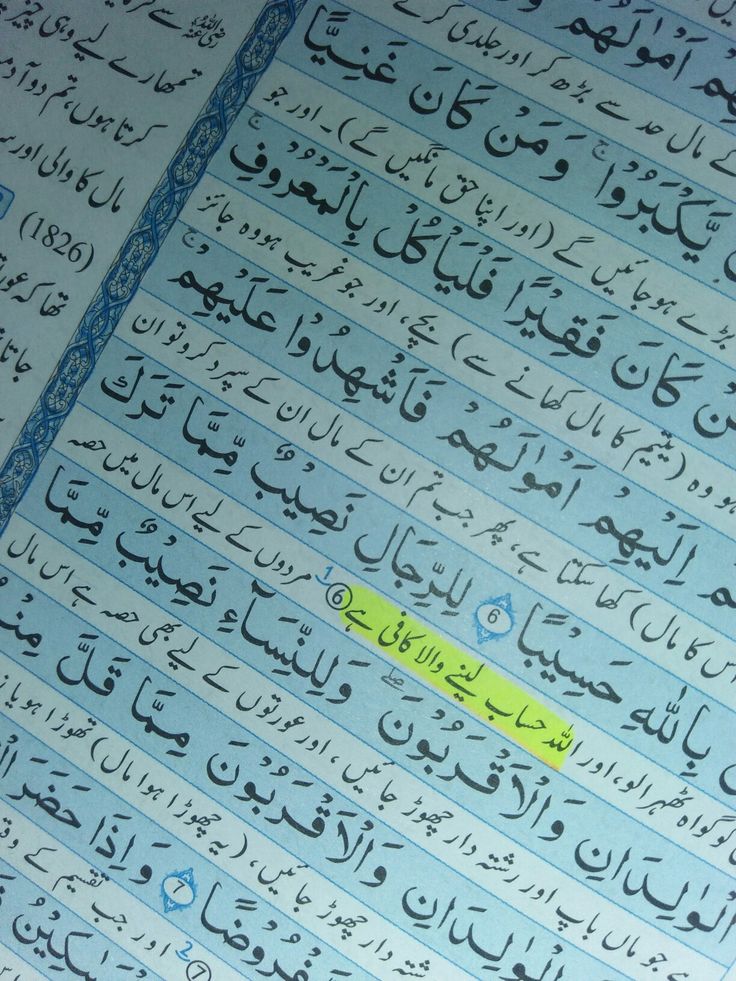 سے کر
تمھارے لیے وہی چیز
کرتا ہوں، تم دو آدمی
مال کا والی اور
(1826)
تھا کہ
جاتا
میں
هِمْ اَمْوٰلَهُمْ
کے مال حد سے بڑھ کر اور جلدی کرتے
يَّكْبَرُوْا ۚ وَمَنْ كَانَ غَنِيًّا
بڑے ہو جائیں گے (اور اپنا حق مانگیں گے)۔ اور جو
كَانَ فَقِيْرًا فَلْيَاْكُلْ بِالْمَعْرُوْفِ ۚ
ہو وہ (یتیم کا مال کھانے سے) بچے، اور جو غریب ہو وہ جائز
اِلَيْهِمْ اَمْوٰلَهُمْ فَاَشْهِدُوْا عَلَيْهِمْ ۚ
اس کا مال) کھا سکتا ہے، پھر جب تم ان کے مال ان کے سپرد کرو تو ان
بِاللّٰهِ حَسِيْبًا 6 لِلرِّجَالِ نَصِيْبٌ مِّمَّا تَرَكَ
کو گواہ ٹھہرا لو، اور اللہ حساب لینے والا کافی ہے ⑥ 1 مردوں کے لیے اس مال میں حصہ
الْوٰلِدَانِ وَالْاَقْرَبُوْنَ ۖ وَلِلنِّسَآءِ نَصِيْبٌ مِّمَّا
ہے جو ماں باپ اور رشتہ دار چھوڑ جائیں، اور عورتوں کے لیے بھی حصہ ہے اس مال
الْوٰلِدَانِ وَالْاَقْرَبُوْنَ مِمَّا قَلَّ مِنْهُ
رشتہ دار چھوڑ جائیں، (یہ چھوڑا ہوا مال) تھوڑا ہو یا
فْرُوْضًا 7 وَاِذَا حَضَرَ
⑦ 2 اور جب تقسیم کے